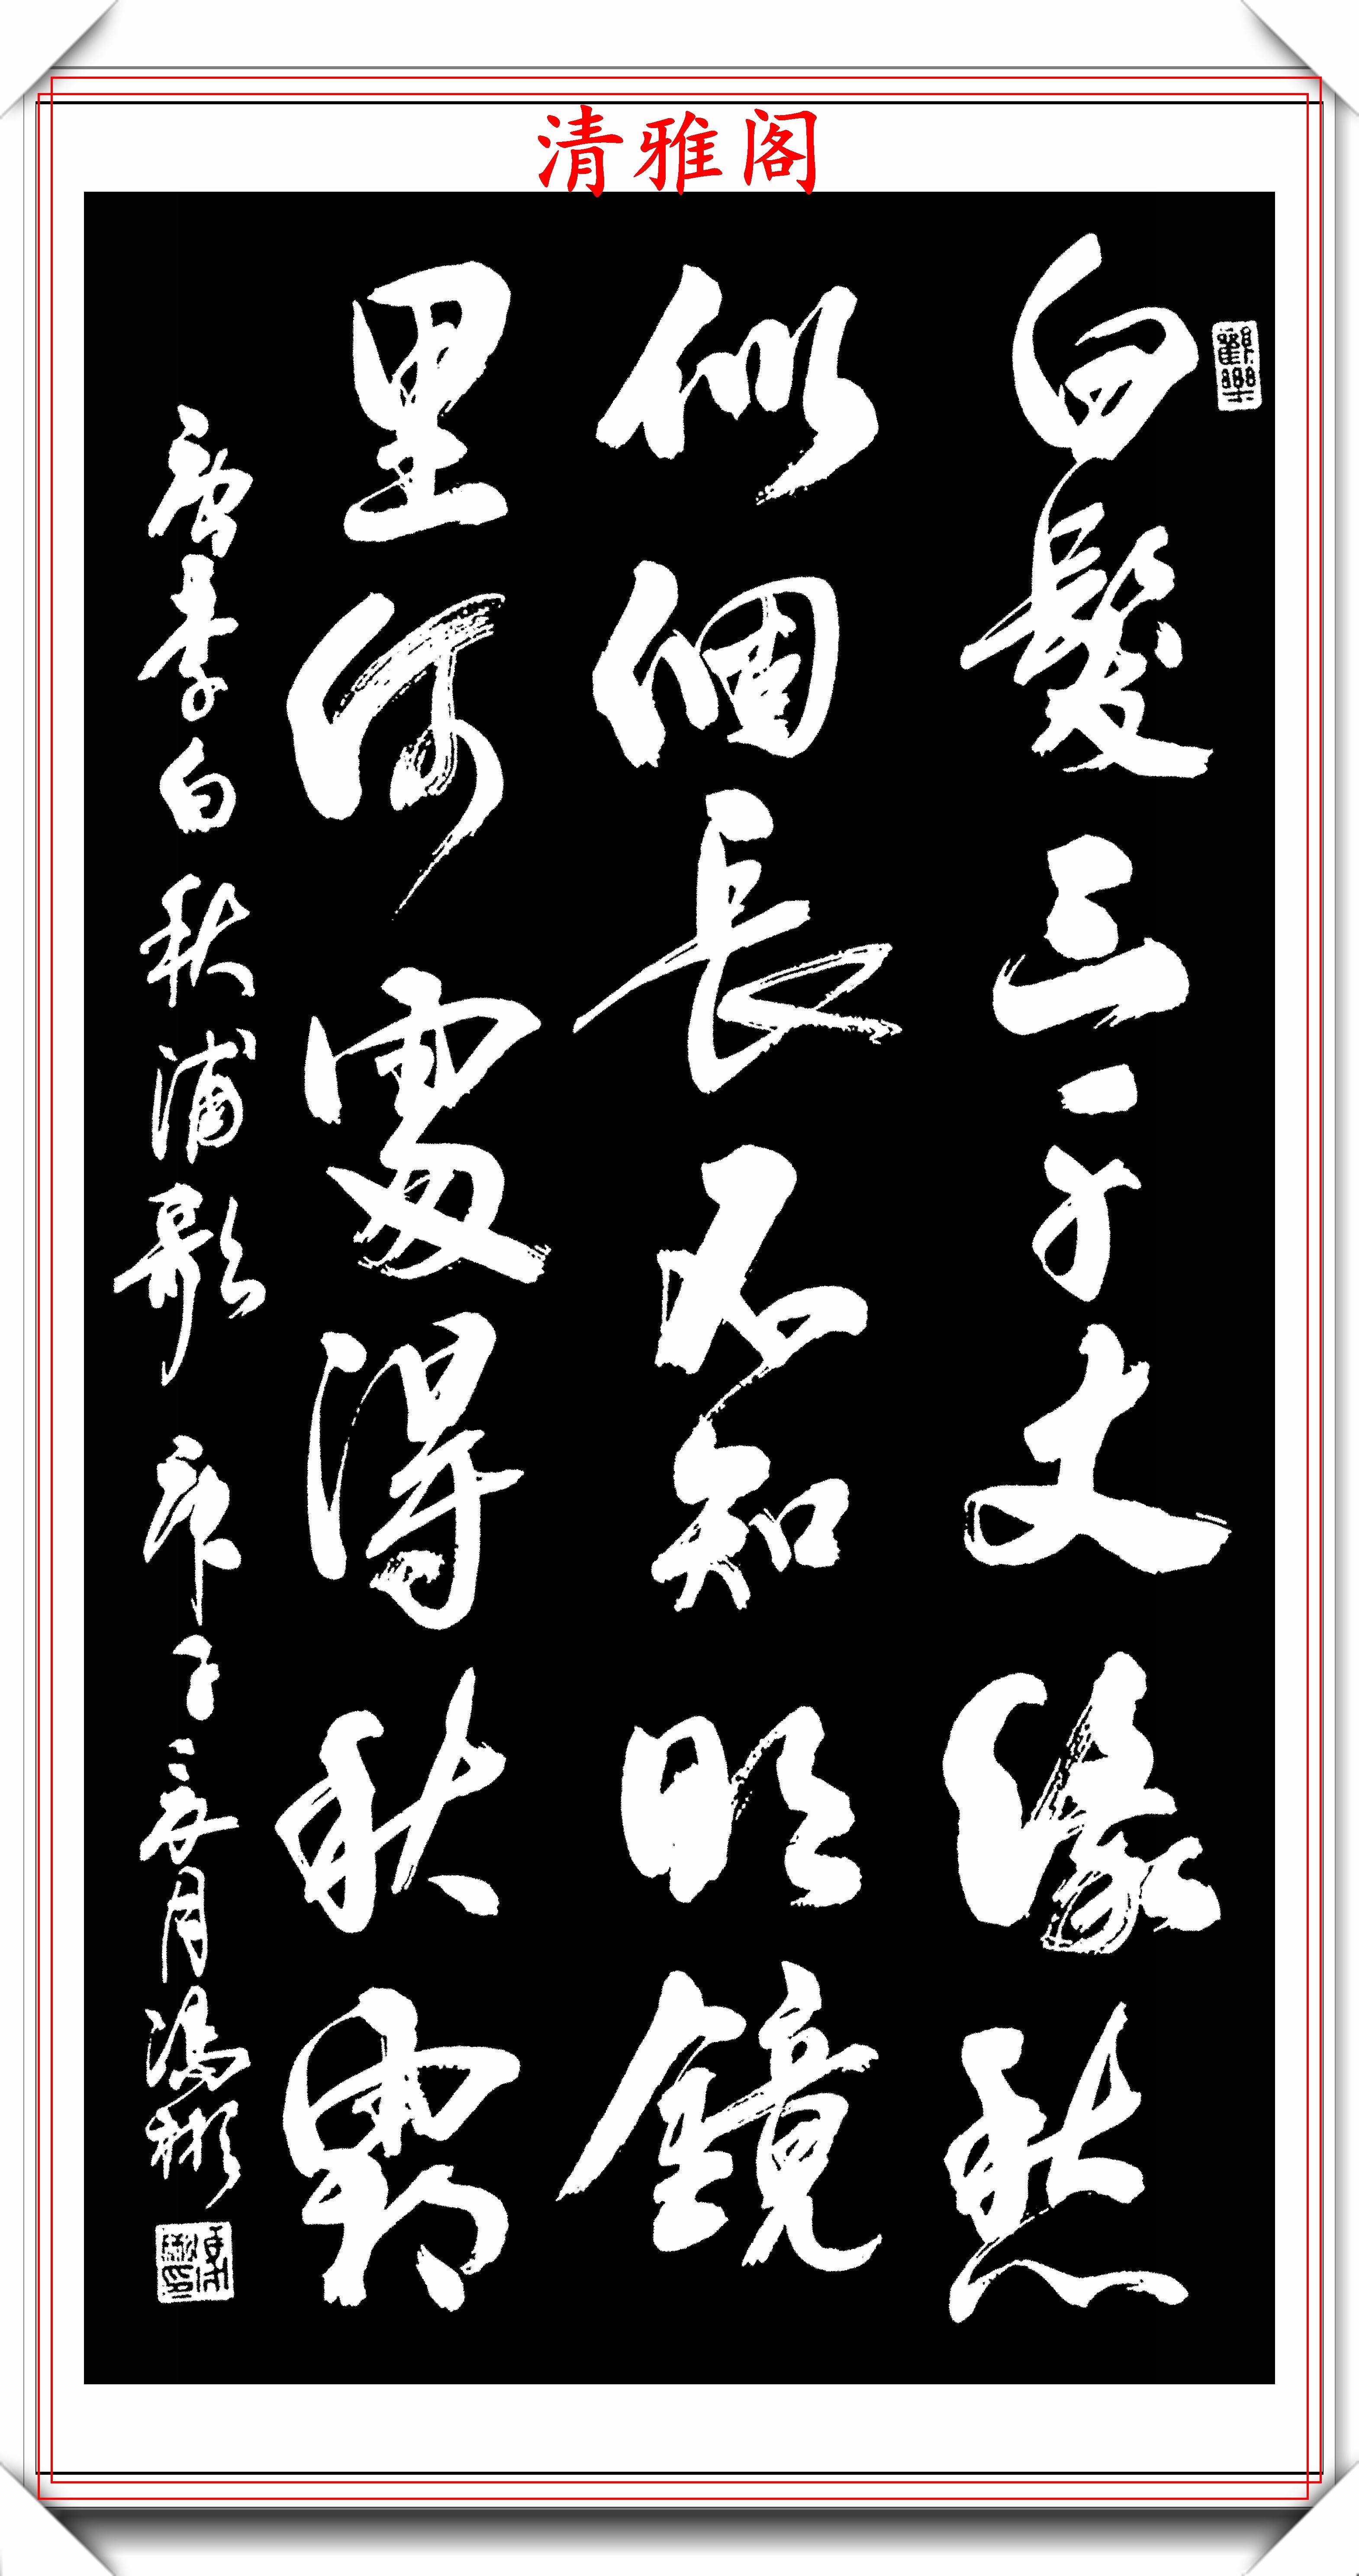 清雅阁
白髮三千丈緣愁
似個長不知明鏡
里何處得秋霜
唐李白秋浦歌 月